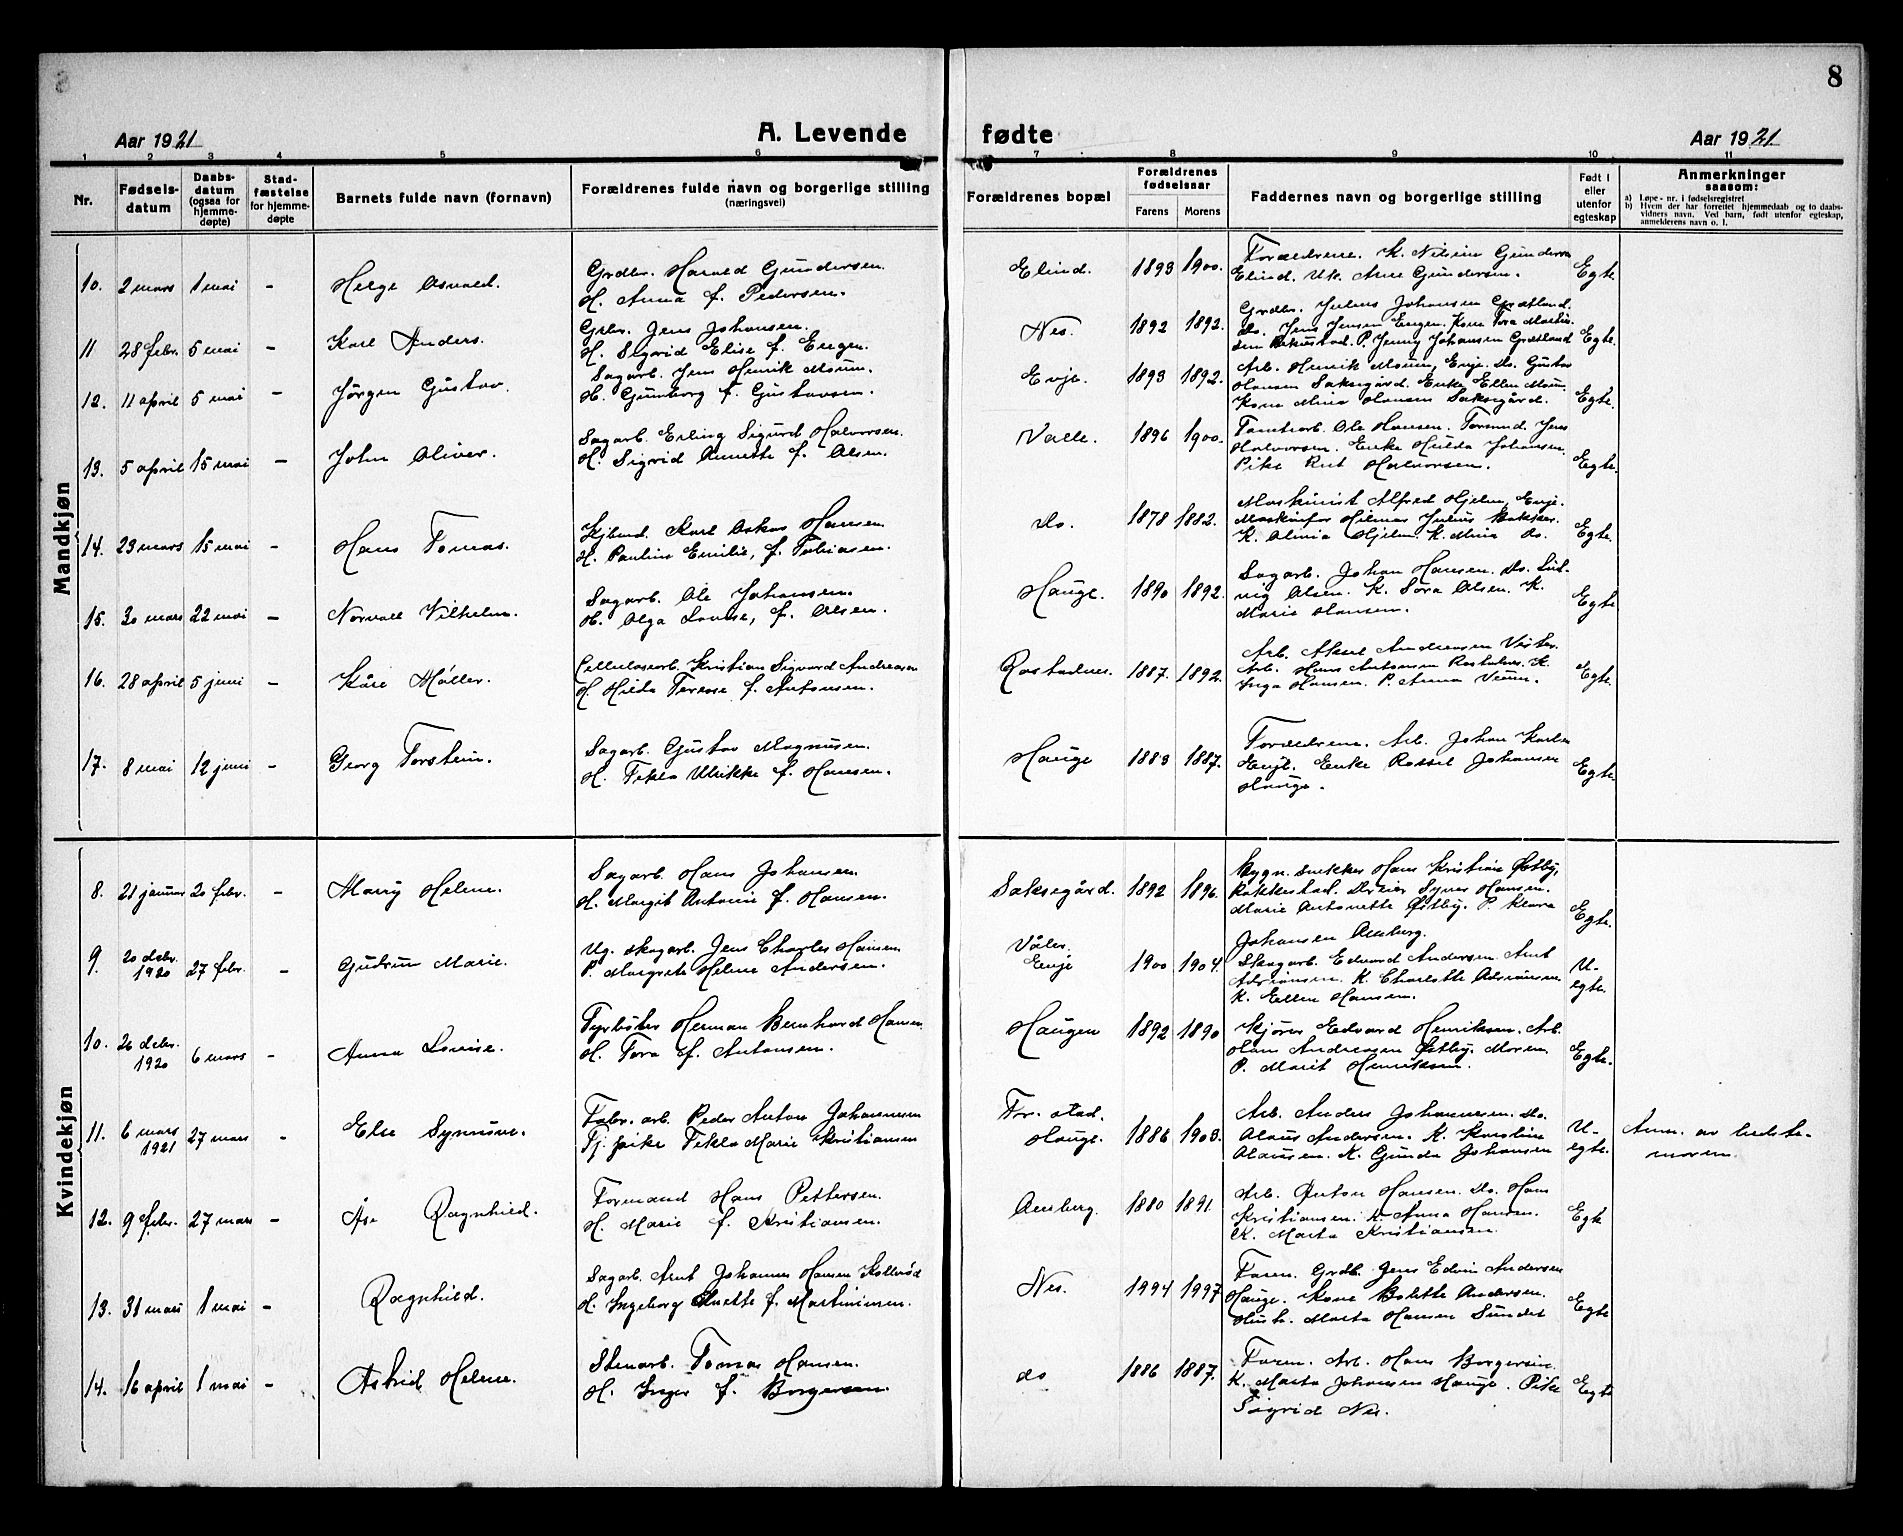 8
Aar 1921
A. Levende fødte
Aar 1921
1 2 3 4 5 6 7 8 9 10 11
Nr.
Fødsels-
datum
Daabs-
datum
(ogsaa for
hjemme-
døpte)
Stad-
fæstelse
for hjemme-
døpte
Barnets fulde navn (fornavn)
Forældrenes fulde navn og borgerlige stilling
(næringsvei)
Forældrenes bopæl
Forældrenes
fødselsaar
Farens Morens
Faddernes navn og borgerlige stilling
Født i
eller
utenfor
egteskap
Anmerkninger
saasom:
a) Løpe-nr. i fødselsregistret
b) Hvem der har forrettet hjemmedaab og to daabs-
vidners navn. Ved barn, født utenfor egteskap,
anmelderens navn o. l.
Mandkjøn
10. 2 mars 1 mai - Helge Osvald.
Grdbr. Harald Gundersen.
H. Anna f. Pedersen.
Elind. 1893 1900.
Forældrene. K. Nilsine Gundersen
Elind. Uk. Anne Gundersen.
Egte
11 28 febr. 5 mai - Karl Anders.
Grbr. Jens Johansen.
H. Sigrid Elise f. Engen.
Nes. 1892 1892.
Grdbr. Julius Johansen Grætland.
do. Jens Jensen Engen. Kone Tora Martin-
sen P. Jenny Johansen Grætland
Egte.
12. 11 april 5 mai - Jørgen Gustav.
Sagarb. Jens Henrik Moum.
H. Gunborg f. Gustavsen.
Evje. 1893 1892.
Arb. Henrik Moum, Evje. Do. Gustav
Hansen Saksegård. Enke Ellen Moum
Kone Mina Hansen Saksegård.
Egte.
13. 5 april 15 mai - John Oliver.
Sagarb. Erling Sigurd Halvorsen.
H. Sigrid Annette f. Olsen.
Valle. 1896 1900.
Tomtearb. Ole Hansen. Formand Jens
Halvorsen. Enke Hulda Johansen.
Pike Rut Halvorsen.
Egte.
14. 23 mars 15 mai - Hans Tomas.
Karl Oskar Hansen
H. Pauline Emilie, f. Tobiasen.
do. 1878 1882.
Maskinist Alfred Hjelm, Evje.
Hilmar Julius Bakke.
K. Olivia Hjelm. K. Mina do.
Egte.
15. 30 mars 22 mai - Norvall Vilhelm.
Sagarb. Ole Johansen.
H. Olga Lovise, f. Olsen.
Hauge. 1890 1892.
Sagarb. Johan Hansen. Do. Lud-
vig Olsen. K. Sora Olsen. K.
Marie Hansen.
Egte
16. 28 april 5 juni - Kåre Møller.
Cellulosearb. Kristian Sigvard Andreasen
H. Hilda Terese f. Antonsen.
Rostadnes. 1887. 1892.
Arb. Aksel Andreasen
Arb. Hans Antonsen Rostadnes. K.
Inga Hansen. P. Anna
Egte.
17. 8 mai 12 juni - Georg Torstein.
Sagarb. Gustav Magnusen.
H. Tekla Ulrikke f. Hansen.
Hauge 1883 1887.
Forældrene. Arb. Johan Karlsen
Evje. Enke Rossel Johansen
Hauge.
Egte.
Kvindekjøn
8. 21 januar 20 febr. - Marry Helene.
Sagarb Hans Johansen.
H. Margit Antonie f. Hansen.
Saksegård. 1892 1896.
Bygn. snekker Hans Kristian Østby,
Rakkestad. Dreier Syver Hansen.
Marie Antonette Østby. P. Klara
Johansen Aaeberg.
Egte.
9. 20 debr. 1920 27 febr. - Gudrun Marie.
Ug. skogarb. Jens Charles Hansen
P. Margrete Helene Andersen.
Våler.
Evje
1900 1904.
Skogarb. Edvard Andersen. Arnt
Adriansen. K. Charlotte Adriansen
K. Ellen Hansen.
U-
egte.
10. 26 debr. 1920 6 mars - Anna Lovise.
Fyrbøter Herman Bernhard Hansen
H. Tora f. Antonsen.
Haugen 1892 1890
Kjører Edvard Henriksen. Arb.
Hans Andreasen Østby. Moren.
P. Marit Henriksen.
Egte.
11. 6 mars 1921 27 mars - Else Synnøve.
Fabr. arb. Peder Anton Johannesen
Tj. pike Tekla Marie Kristiansen
Fr. stad.
Hauge.
1886 1903.
Arb. Anders Johannesen. Do.
Olaus Andersen. K. Karoline
Olaussen. K. Gunda Johansen
U-
egte.
Anm. av bedste-
moren.
12. 9 febr. 27 mars - Åse Ragnhild.
Formand Hans Pettersen.
H. Marie f. Kristiansen.
Aaeberg. 1880 1891.
Arb. Anton Hansen. Do. Hans
Kristiansen. K. Anna Hansen.
K. Marta Kristiansen.
Egte
13. 31 mars 1 mai - Ragnhild.
Sagarb. Arnt Johannes Hansen Kollerød
H. Ingeborg Anette f. Martinsen.
Nes. 1994 1997
Faren. Grdb. Jens Edvin Andersen
Hauge. Kone Bolette Andersen.
Hustr. Marta Hansen Sundet
Egte
14. 16 april 1 mai - Astrid Helene.
Stenarb. Tomas Hansen.
H. Inger f. Borgersen.
do 1886 1887.
Faren. Arb. Hans Borgersen.
K. Marta Johansen Hauge. Pike
Sigrid Nes.
Egte